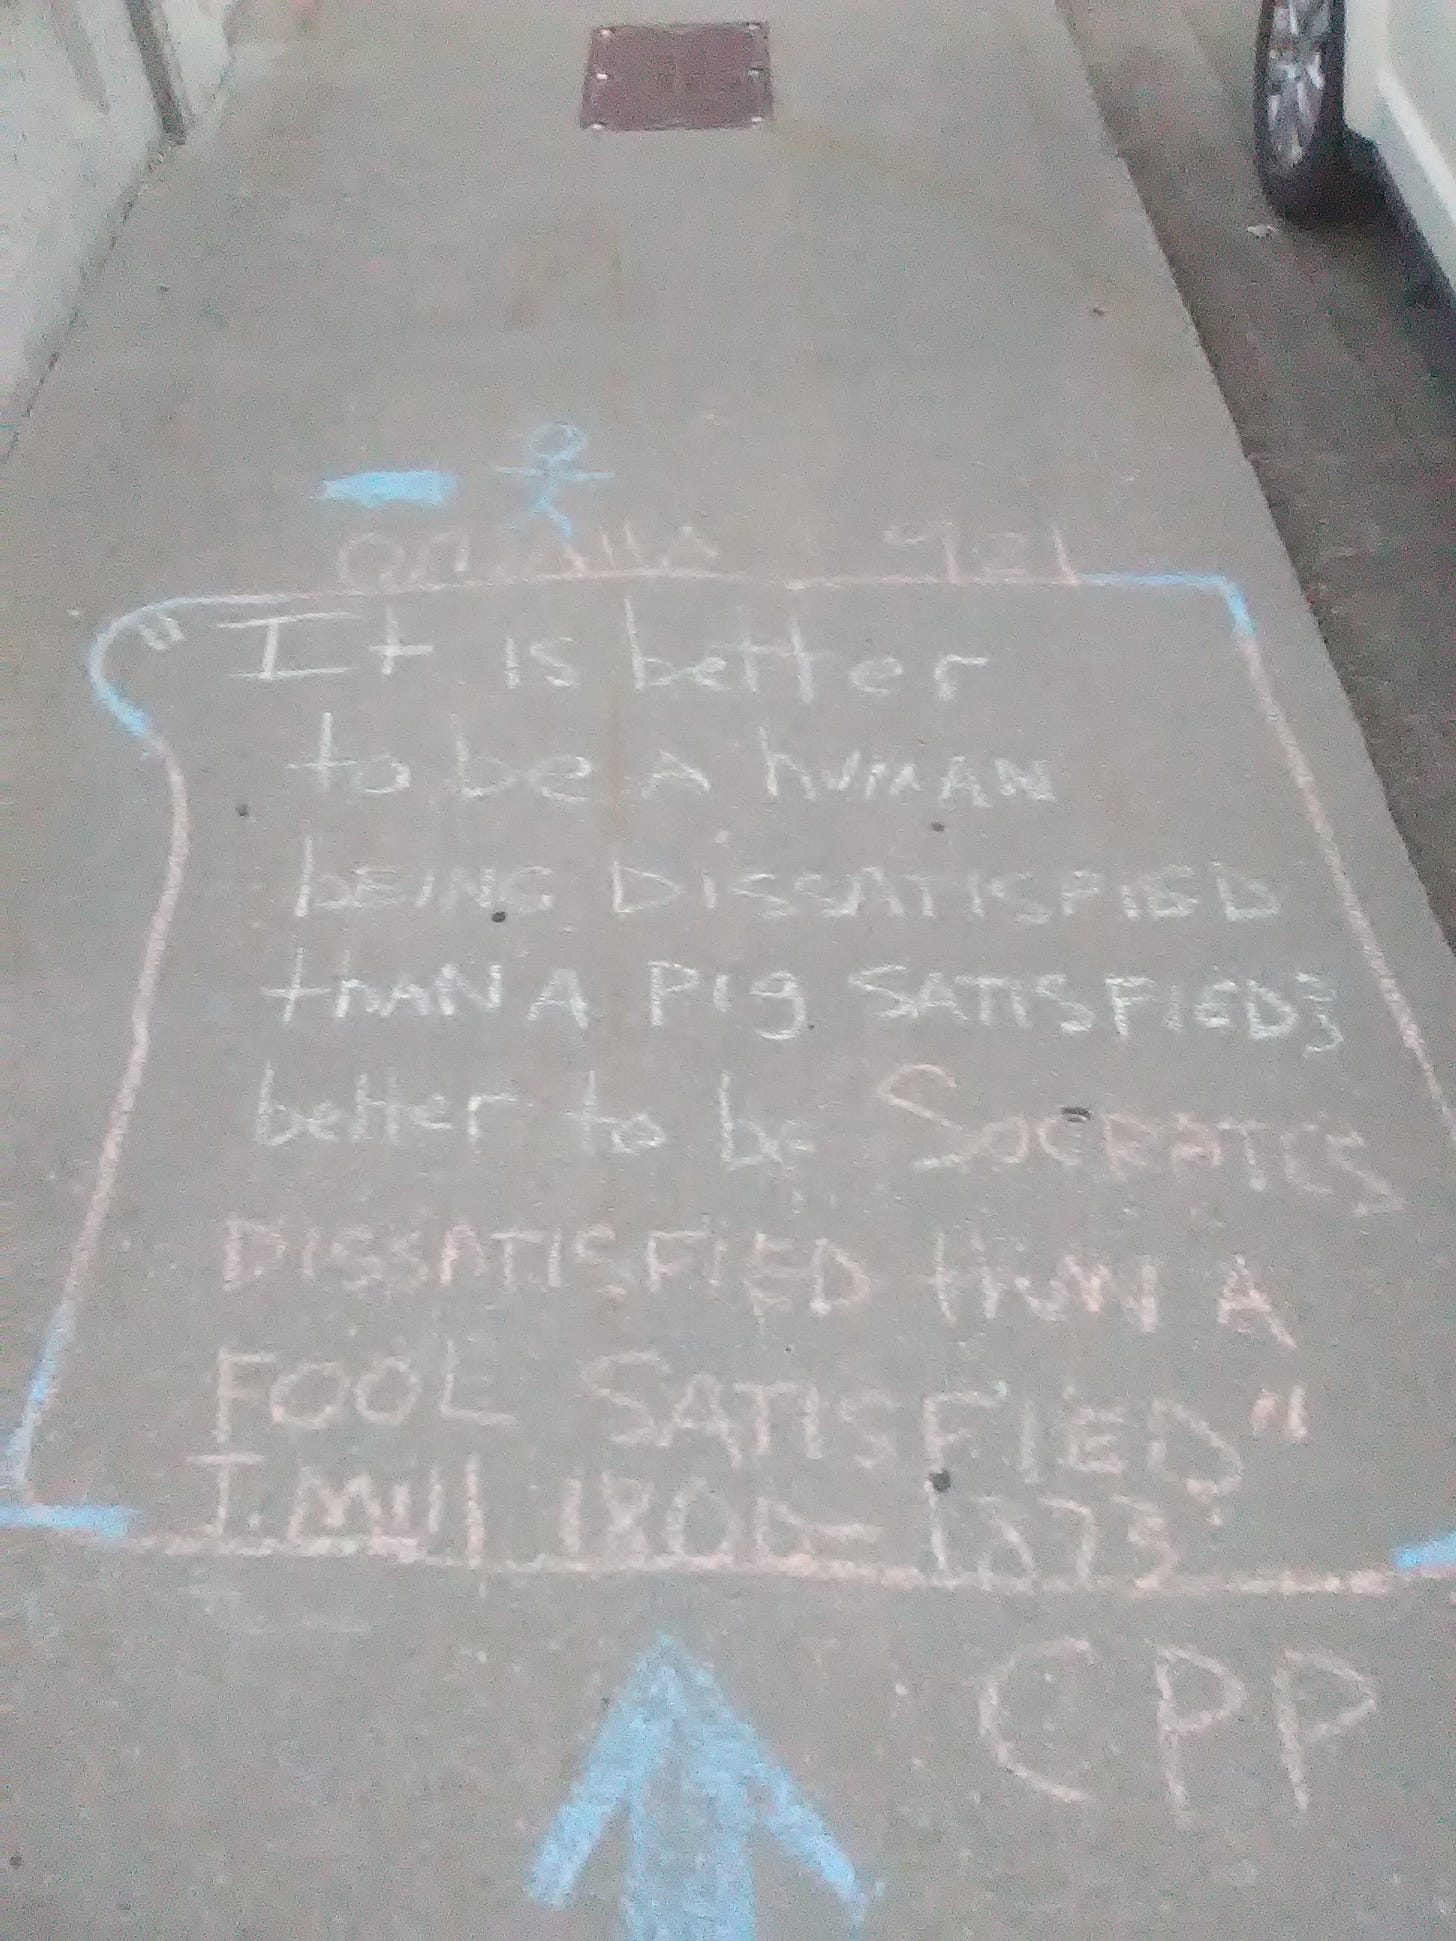 921
"It is better
to be A humAN
bEING DISSATISFIED
thAN A PIg SATISFIED;
better to be SOCRATES
DISSATISFIED thAN A
FOOL SATISFIED"
J. Mill 1806-1873
CPP